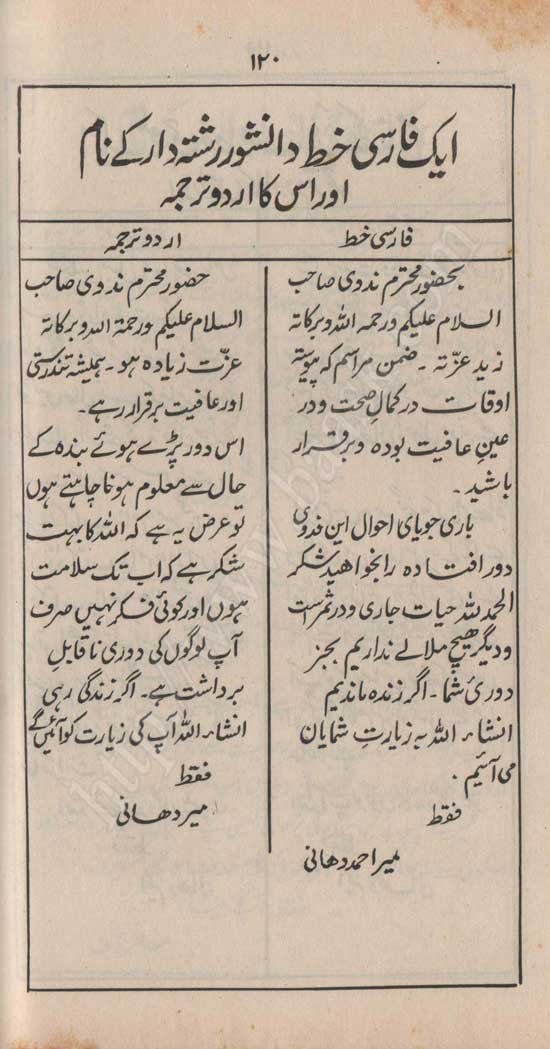 ۱۲۰
ایک فارسی خط دانشور رشتہ دار کے نام
اور اس کا اردو ترجمہ
فارسی خط
بحضور محترم ندوی صاحب
السلام علیکم ورحمۃ اللہ وبرکاتہ
زید عزّتہ ۔ ضمن مراسم کہ پیوستہ
اوقات در کمالِ صحت و در
عینِ عافیت بودہ و برقرار
باشید ۔
باری جویای احوال این فدوی
دور افتادہ را بخواھید شکر
الحمد للہ حیات جاری و در ثمر است
و دیگر ھیچ ملالے نداریم بجز
دوریٔ شما ۔ اگر زندہ ماندیم
انشاء اللہ بہ زیارتِ شمایان
می آئیم ۔
فقط
میر احمد دھانی
اردو ترجمہ
حضور محترم ندوی صاحب
السلام علیکم ورحمۃ اللہ وبرکاتہ
عزّت زیادہ ہو ۔ ہمیشہ تندرستی
اور عافیت برقرار رہے ۔
اس دور پڑے ہوئے بندہ کے
حال سے معلوم ہونا چاہتے ہوں
تو عرض یہ ہے کہ اللہ کا بہت
شکر ہے کہ اب تک سلامت
ہوں اور کوئی فکر نہیں صرف
آپ لوگوں کی دوری ناقابلِ
برداشت ہے ۔ اگر زندگی رہی
انشاء اللہ آپ کی زیارت کو آئیں گے
فقط
میر دھانی